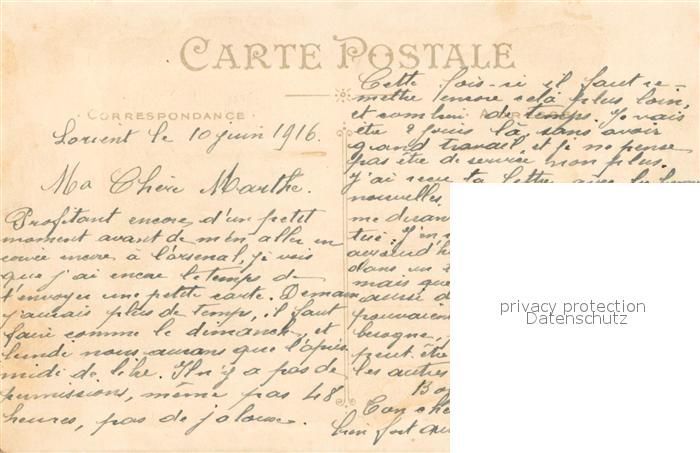 CARTE POSTALE
CORRESPONDANCE
Lorient le 10 juin 1916.
Ma Chère Marthe.
Profitant encore d'un petit
moment avant de m'en aller en
corvée encore à l'arsenal, je vois
que j'ai encore le temps de
t'envoyer une petite carte. Demain
j'aurais plus de temps, il faut
faire comme le dimanche, et
lundi nous aurons que l'après
midi de libre. Il n'y a pas de
permissions, même pas 48
heures, pas de jaloux.
Cette fois-ci il faut re-
mettre encore cela plus loin,
et combien de temps. Je vais
être 8 jours là, sans avoir
grand travail, et je ne pense
pas être de service non plus.
J'ai reçu ta lettre avec les bonnes
nouvelles,
me disan
tué. J'en
aujourd'h
dans un
mais que
aussi d
pouvaien
besogne,
peut être
les autres
Bo
Ton che
bien fort
privacy protection
Datenschutz